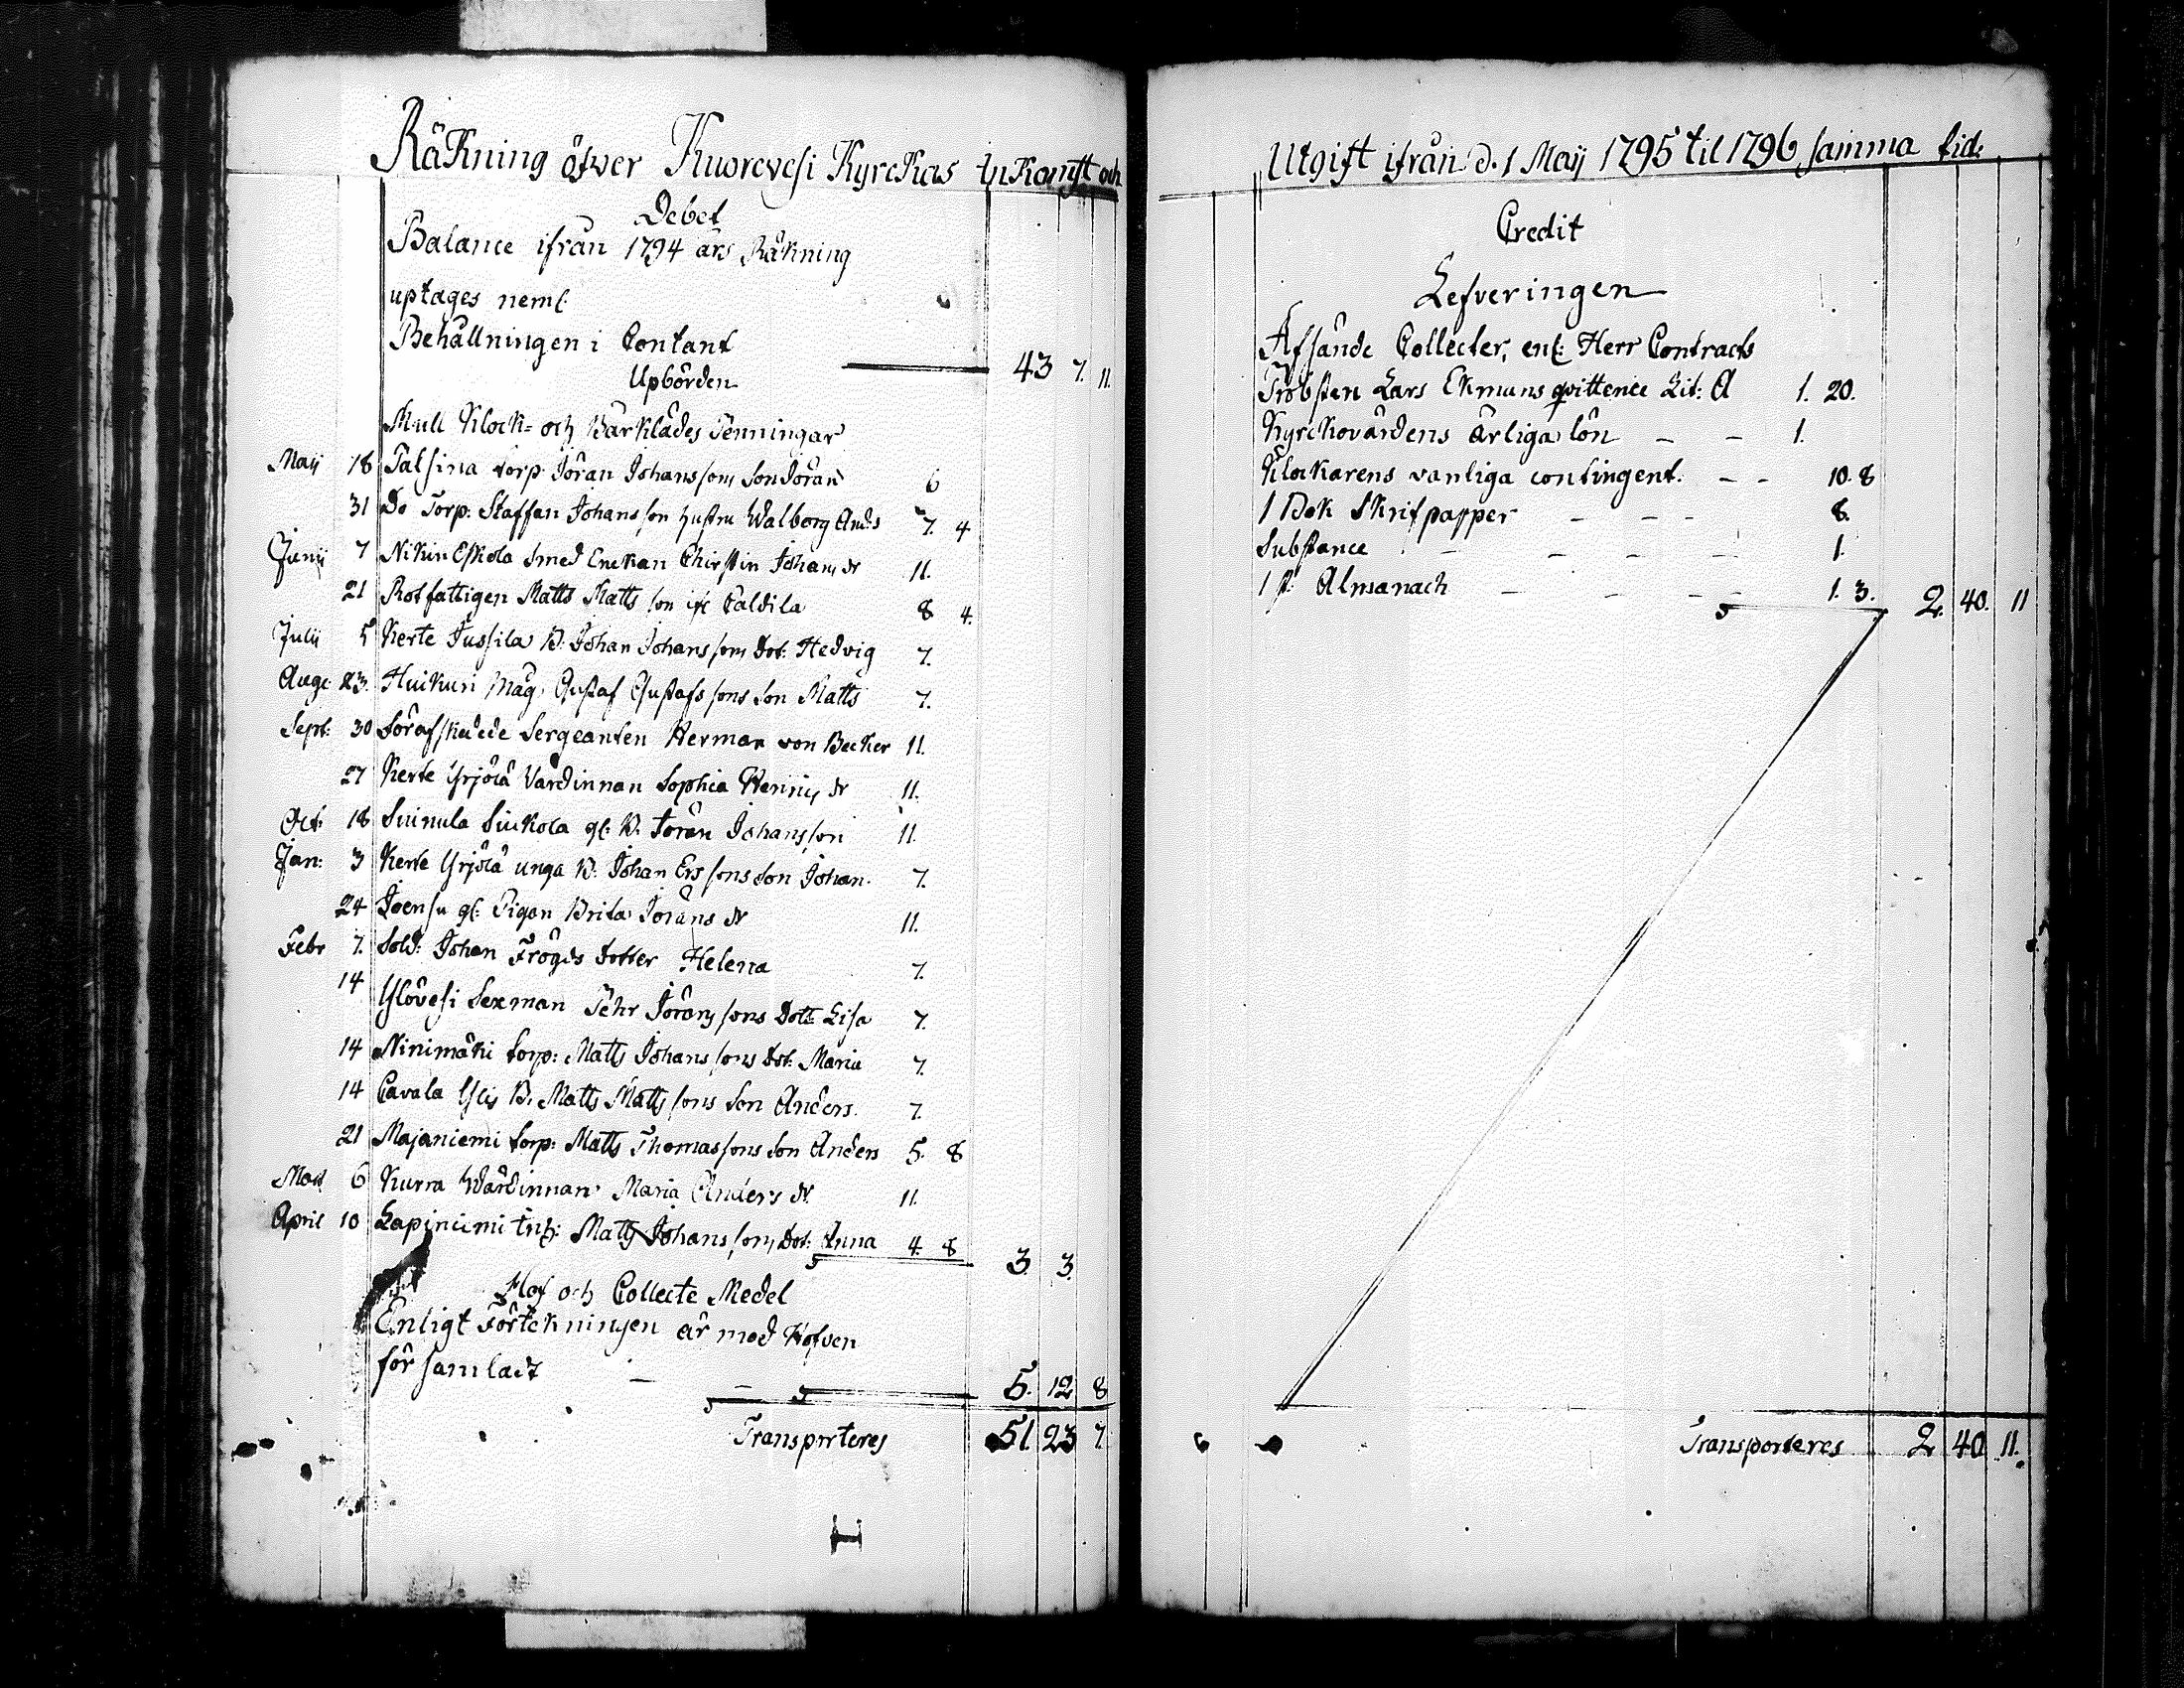 Räkning öfver Kuorevesi Kyrckas Inkomst och
Debet
Balance ifrån 1794 års Räkning
uptages neml:
Behållningen i Contant 43 7. 11.
Upbörden
Mull Klock- och Bårklädes Penningar
Maij 18 Patsina torp Jöran Johanssons Son Jöran 6
31 Do Torp: Staffan Johansson hustru Walborg Ands 7. 4
Junii 7 Nikin Eskola Smed Enckan Chirstin Johans dr 11.
21 Rotfattigen Matts Mattsson ifr Paldila 8 4.
Julii 5 Kerte Jussila B: Johan Johanssons Dot: Hedvig 7.
Aug: 23. Huikuri Måg: Gustaf Gustafssons Son Matts 7.
Sept: 30 Föraf skedede Sergeanten Herman von Becker 11.
27 Kerte Yrjölä Värdinnan Sophia Henrics dr 11.
Oct: 18 Suinula Siukola gl: B. Jöran Johansson 11.
Jan: 3 Kerte Yrjölä unga B: Johan Erssons Son Johan. 7.
24 Joensu gl: Pigan Brita Jörans dr 11.
Febr 7. Sold: Johan Frögds dotter Helena 7.
14 Ylövesi Sexman Pehr Jöranssons Dott: Lisa 7.
14 Ninimäki torp: Matts Johanssons Dot: Maria 7.
14 Pavala Ylis B. Matts Mattssons Son Anders. 7.
21 Majaniemi torp: Matts Thomassons Son Anders 5. 8
Mart 6 Kurra Wärdinnan Maria Anders dr. 11.
April 10 Lapiniemi Inh: Matts Johanssons Dot: Anna 4. 8 3. 3.
Hof och Collecte Medel
Enligt Förtekningen är med Hofven
för samladt 5. 12 8
Transporteres 51 23 7.
Utgift ifrån d. 1 Maij 1795 til 1796 samma tid.
Credit
Lefveringen
Afsände Collecter, enl: Herr Contracts
Probsten Lars Ekmans qvittence Lit: A 1. 20.
Kyrckovärdens årliga lön 1.
Klockarens vanliga contingent. 10. 8
1 Bok Skrifpapper 8.
Substance 1.
1 st: Almanach 1. 3. 2. 40. 11
Transporteres 2 40 11.